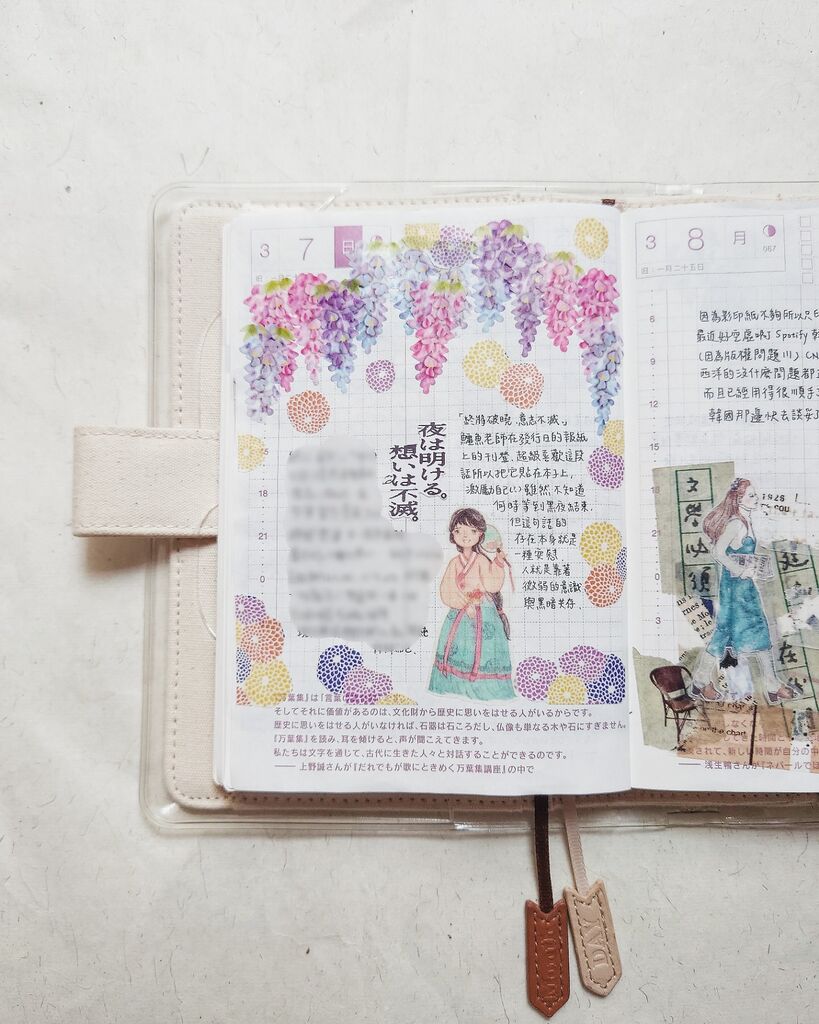 3 7 日
18
21
0
夜は明ける。
想いは不滅。
「終將破曉，意志不滅。」
鱷魚老師在發行日的報紙
上的刊登，超級喜歡這段
話所以把它貼在本子上，
激勵自己(:)雖然不知道
何時等到黑夜結束，
但這句話的
存在本身就是
一種安慰，
人就是靠著
微弱的意識
與黑暗共存。
『万葉集』は「言葉
そしてそれに価値があるのは、文化財から歴史に思いをはせる人がいるからです。
歴史に思いをはせる人がいなければ、石器は石ころだし、仏像も単なる木や石にすぎません。
『万葉集』を読み、耳を傾けると、声が聞こえてきます。
私たちは文字を通じて、古代に生きた人々と対話することができるのです。
―― 上野誠さんが『だれでもが歌にときめく万葉集講座』の中で
3 8 月 067
旧：一月二十五日
6
9
12
15
18
21
0
3
因為影印紙不夠所以只印
最近好空虛呢」Spotify
(因為版權問題川) CN
西洋的沒什麼問題都
而且已經用得很順手
韓國那邊快去談妥
文學必須
在
1928
the chart
しなくて
されて、新しい時間が自分の中
―― 浅生鴨さんが『ネパールでは
DAY